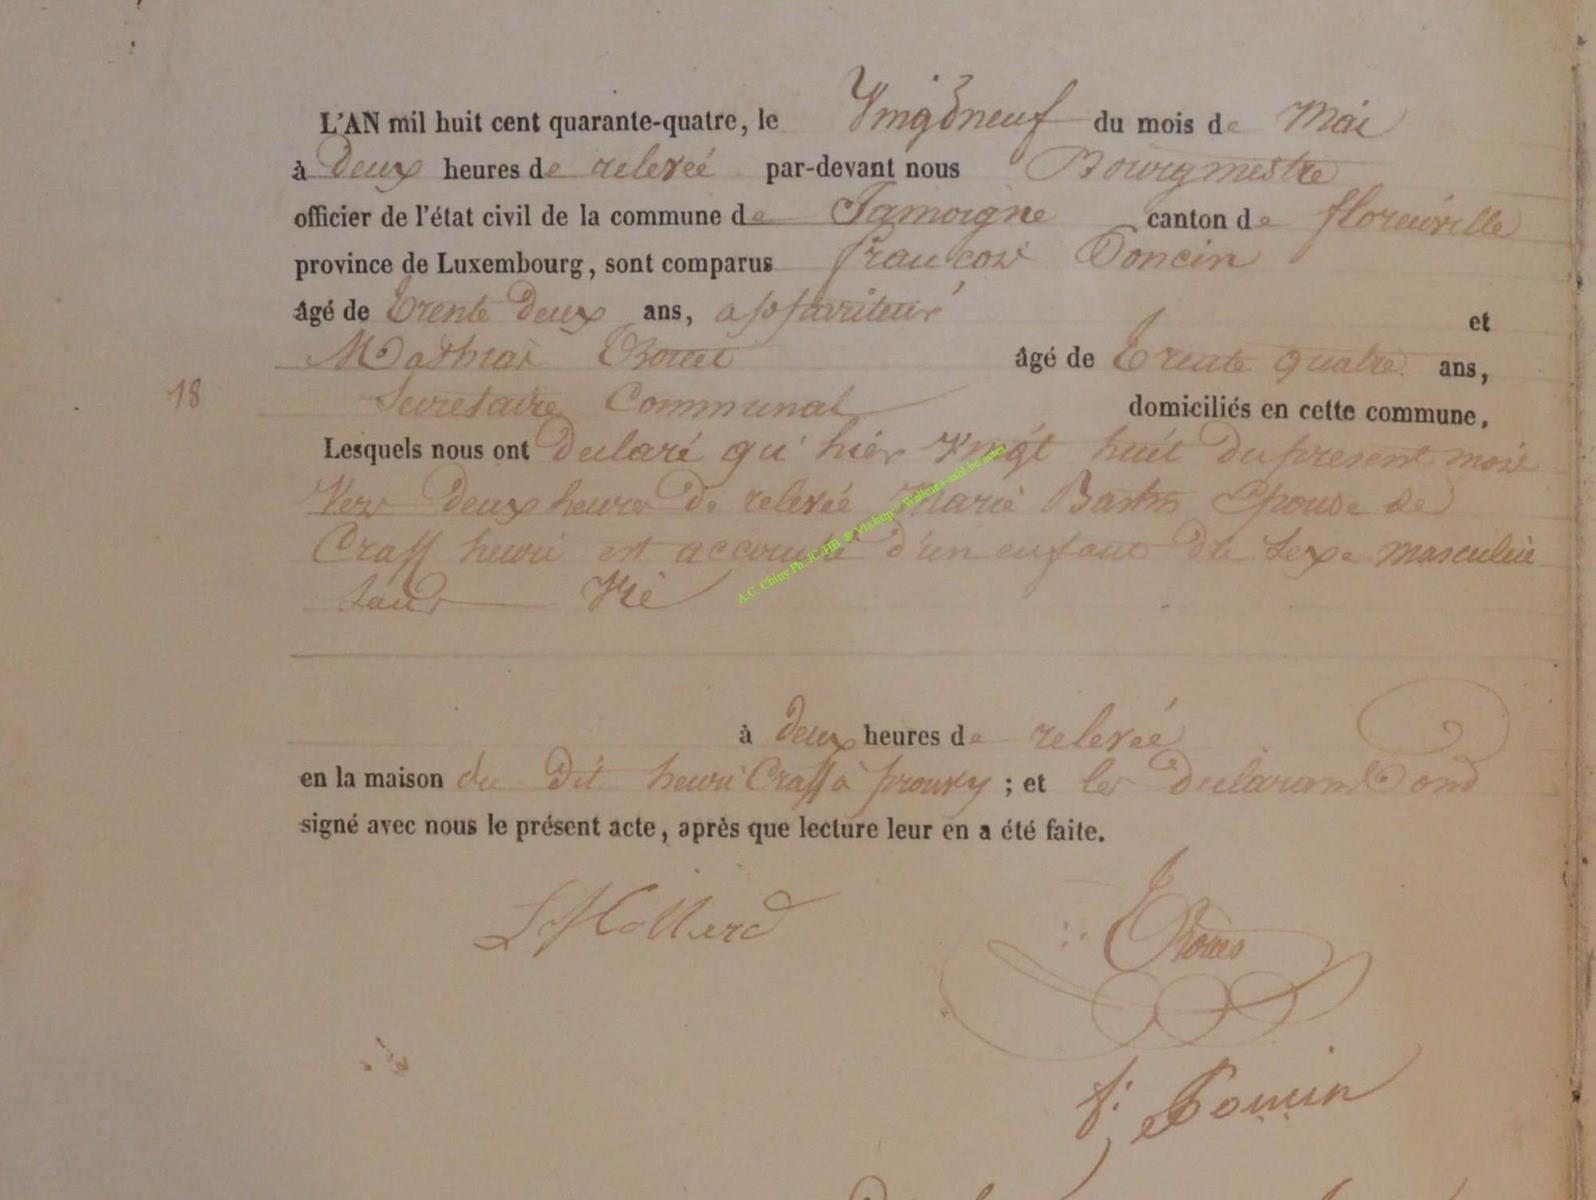 L'AN mil huit cent quarante-quatre, le Vingtneuf du mois de Mai
à Deux heures de relevéé par-devant nous Bourgmestre
officier de l'état civil de la commune de Jamoigne canton de florenville
province de Luxembourg, sont comparus francois Poncin
âgé de trente Deux ans, appariteur et
Mathias âgé de trente quatre ans,
18 Secretaire Communal domiciliés en cette commune,
Lesquels nous ont Declaré qu'hier Vingt huit Du present mois
Vers Deux heures De relevéé Marie Epouse de
Craff henri est accouché d'un enfant Du Sexe masculin
Sans Vie
à Deux heures de relevéé
en la maison du Dit henri Craff à prouvy ; et les Declarants ont
signé avec nous le présent acte, après que lecture leur en a été faite.
f: Poncin
A.C. Chiny Ph. JC-HB @ Via http:// Wallonia-asbl.be/actes